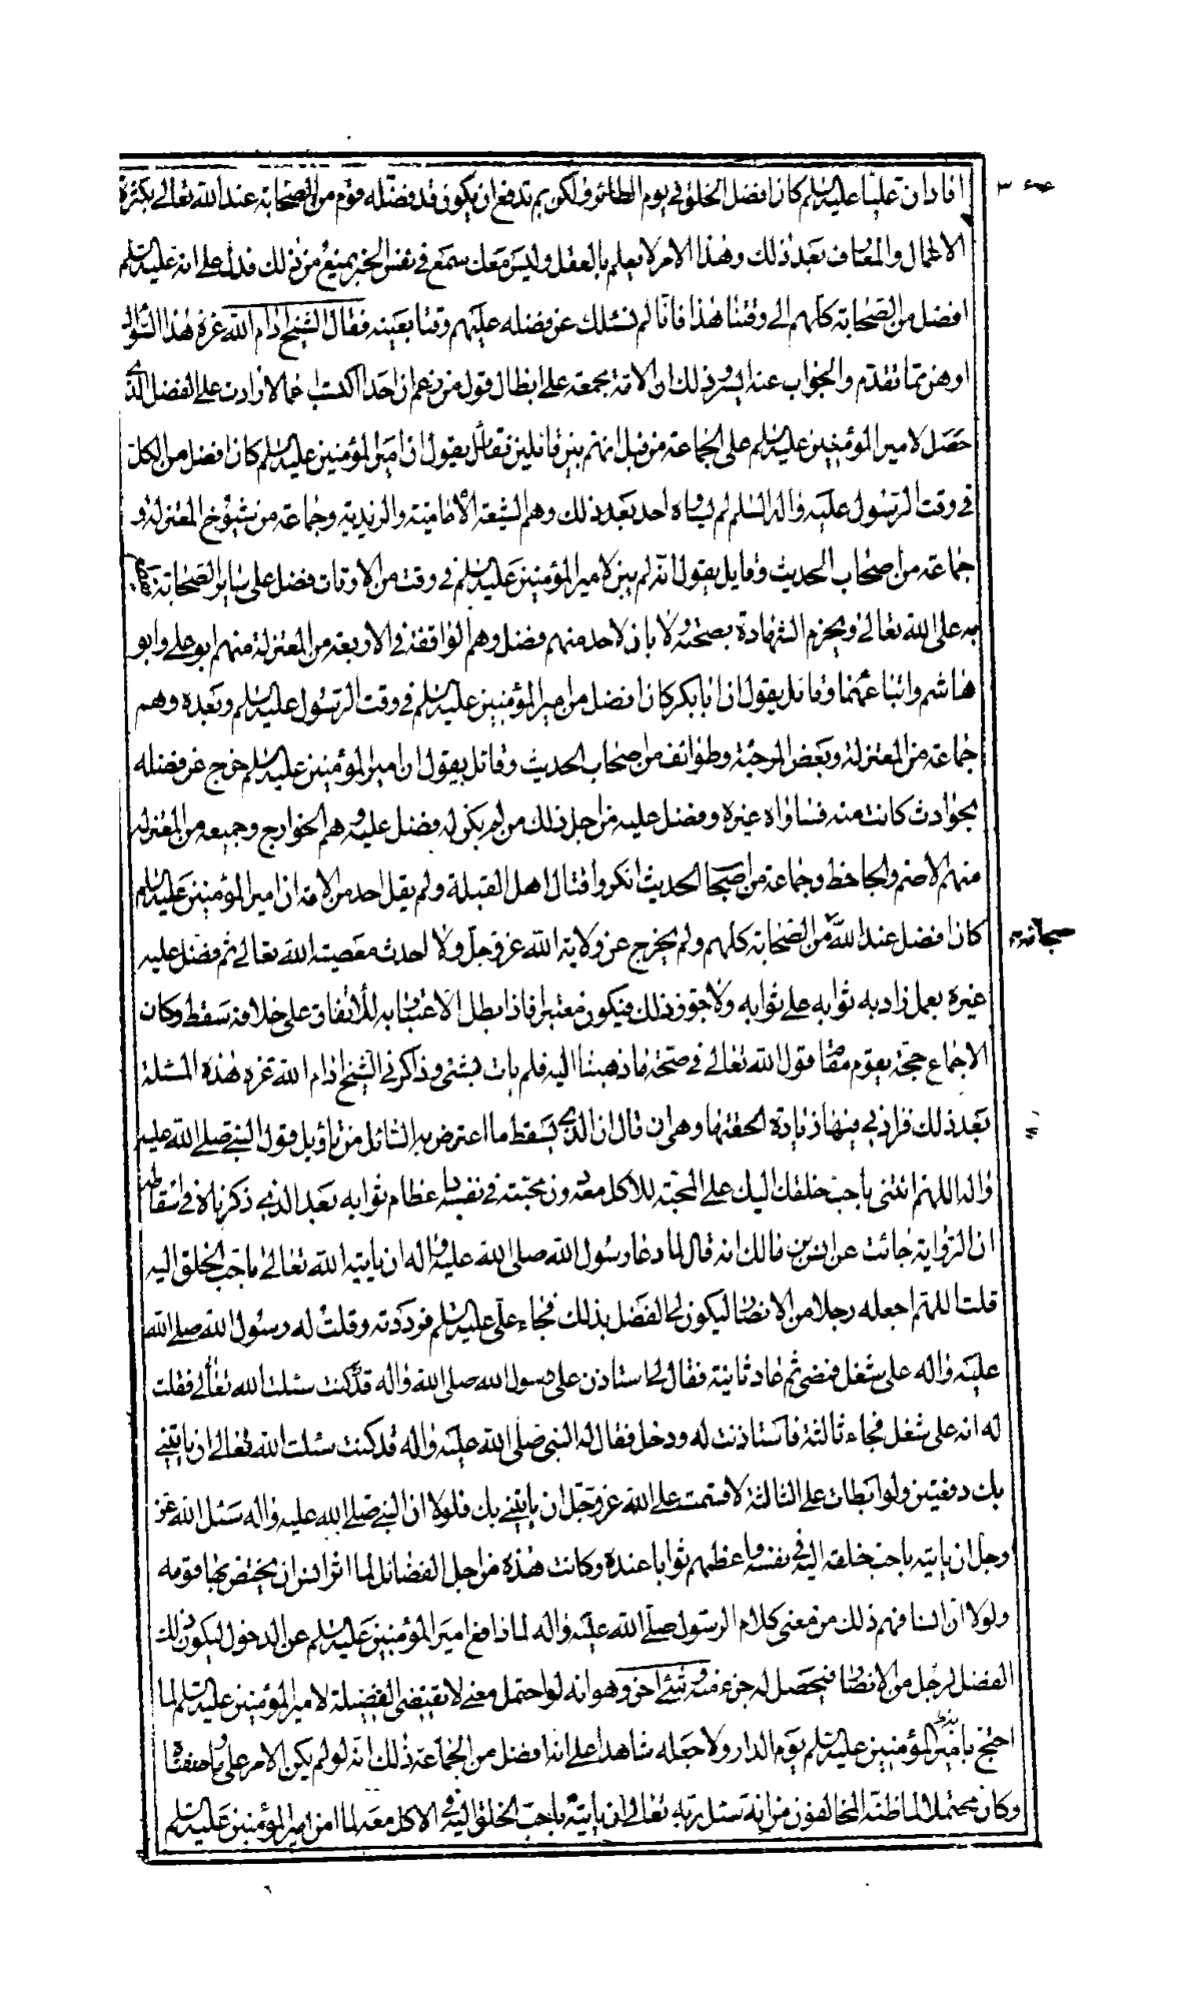 افاد ان عليا عليه السلم كان افضل الخلق في يوم الطائر ولكن بم تدفع ان يكون قد فضله قوم من الصحابة عند الله تعالى بكثرة
الاعمال والمعارف بعد ذلك وهذا الامر لا يعلم بالعقل وليس معك سمع في نفس الخبر يمنع من ذلك فدل على انه عليه السلم
افضل من الصحابة كلهم الى وقتنا هذا فانا لم نسئلك عن فضله عليهم وقتا بعينه فقال الشيخ ادام الله عزه هذا السؤال
اوهن مما تقدم والجواب عنه ايسر وذلك ان الامة مجمعة على ابطال قول من زعم ان احدا اكتسب اعمالا زادت على الفضل الذي
حصل لامير المؤمنين عليه السلم على الجماعة من قبل انهم بين قائلين فقائل يقول ان امير المؤمنين عليه السلم كان افضل من الكل
في وقت الرسول عليه واله السلم لم يساوه احد بعد ذلك وهم الشيعة الامامية والزيدية وجماعة من شيوخ المعتزلة و
جماعة من اصحاب الحديث وقايل يقول انه لم يبن لامير المؤمنين عليه السلم في وقت من الاوقات فضل على ساير الصحابة
به على الله تعالى ويجزم الشهادة بصحته ولا بان لاحد منهم فضل وهم الواقفة في الاربعة من المعتزلة منهم ابو علي وابو
هاشم واتباعهما وقائل يقول ان ابا بكر كان افضل من امير المؤمنين عليه السلم في وقت الرسول عليه السلم وبعده وهم
جماعة من المعتزلة وبعض المرجئة وطوائف من اصحاب الحديث وقائل يقول ان امير المؤمنين عليه السلم خرج عن فضله
بحوادث كانت منه فساواه غيره وفضل عليه من اجل ذلك من لم يكن له فضل عليه وهم الخوارج وجميعه من المعتزلة
منهم الاصم والجاحظ وجماعة من اصحاب الحديث انكروا قتال اهل القبلة ولم يقل احد من الامة ان امير المؤمنين عليه السلم
كان افضل عند الله من الصحابة كلهم ولم يخرج عن ولاية الله عز وجل ولا احدث معصية الله تعالى ثم فضل عليه
سبحانه
غيره بعمل زاد به ثوابه على ثوابه ولا جوز ذلك فيكون معتبرا فاذا بطل الاعتبار به للاتفاق على خلافه سقط وكان
الاجماع حجة يقوم مقام قول الله تعالى في صحة ما ذهبنا اليه فلم يات بشئ وذاكرني الشيخ ادام الله عزه هذه المسئلة
بعد ذلك فزادني فيها زيادة الحقتها وهي ان قال ان الذي يسقط ما اعترض به السائل من تاويل قول النبي صلى الله عليه
واله اللهم ائتني باحب خلقك اليك على المحبة للاكل معه دون محبته في نفسه باعظام ثوابه بعد الذي ذكرناه في اسقاطه
ان الرواية جائت عن انس بن مالك انه قال لما دعا رسول الله صلى الله عليه واله ان ياتيه الله تعالى باحب الخلق اليه
قلت اللهم اجعله رجلا من الانصار ليكون لي الفضل بذلك فجاء علي عليه السلم فرددته وقلت له رسول الله صلى الله
عليه واله على شغل فمضى ثم عاد ثانية فقال لي استاذن على رسول الله صلى الله واله قد كنت سئلت الله تعالى فقلت
له انه على شغل فجاء ثالثة فاستاذنت له ودخل فقال له النبي صلى الله عليه واله قد كنت سئلت الله تعالى ان ياتيني
بك دفعتين ولو ابطات على الثالثة لاقسمت على الله عز وجل ان ياتيني بك فلولا ان النبي صلى الله عليه واله سئل الله عز
وجل ان ياتيه باحب خلقه اليه في نفسه واعظمهم ثوابا عنده وكانت هذه من اجل الفضائل لما اثر انس ان يختص بها قومه
ولولا ان انسا فهم ذلك من معنى كلام الرسول صلى الله عليه واله لما دافع امير المؤمنين عليه السلم عن الدخول ليكون ذلك
الفضل لرجل من الانصار فيحصل له جزء منه وشيئ اخر وهو انه لو احتمل معنى لا يقتضي الفضيلة لامير المؤمنين عليه السلم لما
احتج به امير المؤمنين عليه السلم يوم الدار ولا جعله شاهدا على انه افضل من الجماعة ذلك انه لو لم يكن الامر على ما وصفناه
وكان محتملا لما ظنه المخالفون من انه سئل ربه تعالى ان ياتيه باحب الخلق اليه في الاكل معه لما امن امير المؤمنين عليه السلم